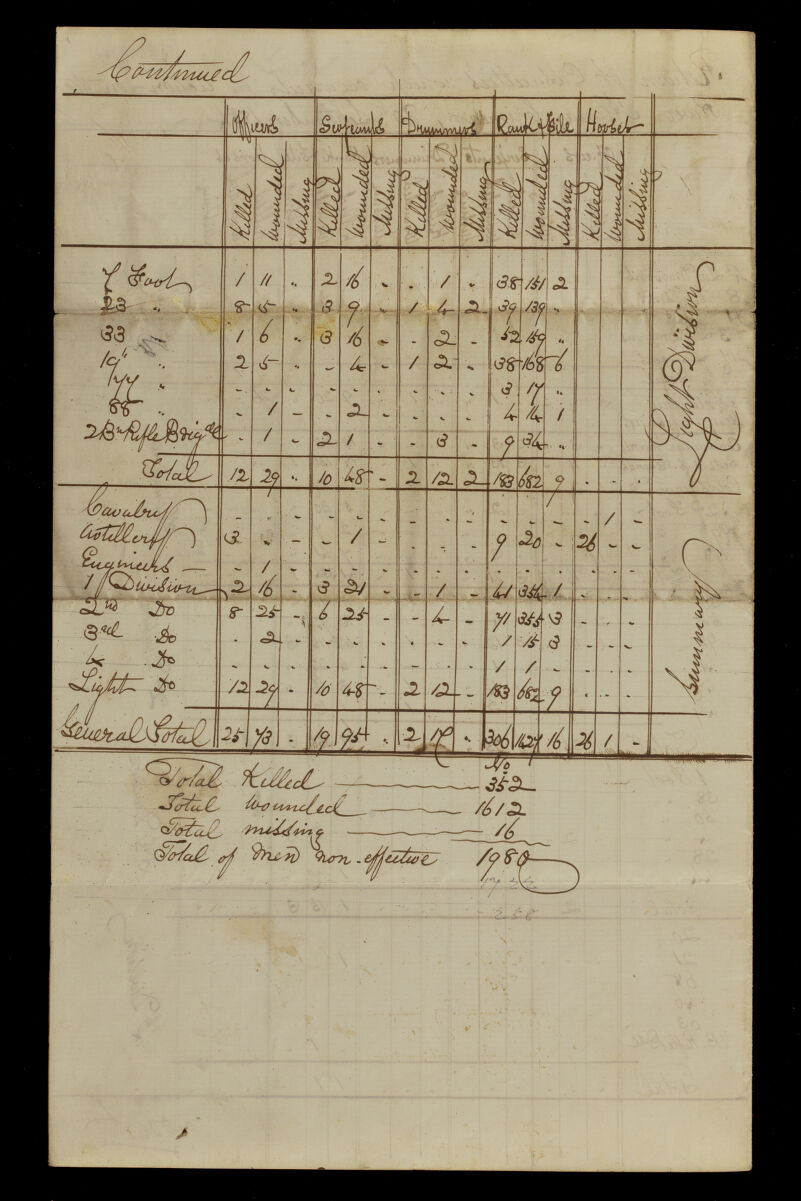 Continued
Officers Serjeants Drummers Rank & File Horses
Killed Wounded Missing Killed Wounded Missing Killed Wounded Missing Killed Wounded Missing Killed Wounded Missing
7 Foot 1 11 " 2 16 - . 1 " 38 151 2
23 " 8 5 " 3 9 - 1 4 2 39 139 "
33 " 1 6 " 3 16 - - 2 - 52 159 "
19" " 2 5 " - 4 - 1 2 - 38 168 6
77 " - - - - - - - - - 3 17 "
88 " - 1 - - 2 - - - - 4 14 1
2 Bn Rifle Brigde - 1 - 2 1 - - 3 - 9 34 "
Total 12 29 " 10 48 - 2 12 2 183 682 9 - - -
Light Division
Cavalry - - - - - - - - - - - - - 1 -
Artillery 3 - - - 1 - - - - 9 20 - 26 - -
Engineers - 1 - - - - - - - - - - - - -
1 Division 2 16 - 3 21 - - 1 - 41 354 1 - - -
2nd Do 8 25 - 6 25 - - 4 - 71 355 3 - - -
3rd Do - 2 - - - - - - - 1 15 3 - - -
4 Do - - - - - - - - - 1 1 - - - -
Light Do 12 29 - 10 48 - 2 12 - 183 682 9 - - -
Summary
General Total 25 73 - 19 95 " 2 17 " 306 1427 16 26 1 -
No
Total Killed 352
Total Wounded 1612
Total missing 16
Total of Men non-effective 1980